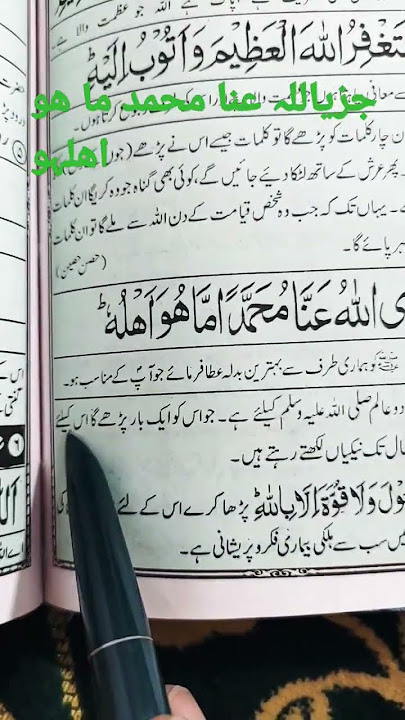 اللہ جو عظمت والا ہے۔
تَغْفِرُ اللهَ الْعَظِيْمَ وَاَتُوْبُ اِلَيْهِ
جزیاللہ عنا محمد ما ھو
اھلہو
ان چار کلمات کو پڑھے گا تو کلمات جیسے اس نے پڑھے
پھر عرش کے ساتھ لٹکا دیئے جائیں گے، کوئی بھی گناہ جو وہ کریگا ان کلمات
یہاں تک کہ جب وہ شخص قیامت کے دن اللہ سے ملے گا تو ان کلمات
ہر پائے گا۔
(حصن حصین)
ی اللهُ عَنَّا مُحَمَّدًا مَّا هُوَ اَهْلُهٗ
ﷺ کو ہماری طرف سے بہترین بدلہ عطا فرمائے جو آپ کے مناسب ہو۔
دو عالم صلی اللہ علیہ وسلم کیلئے ہے۔ جو اس کو ایک بار پڑھے گا اس کیلئے
ال تک نیکیاں لکھتے رہتے ہیں۔
وْلَ وَلَا قُوَّةَ اِلَّا بِاللهِ پڑھا کرے اس کے لئے کی
س سب سے ہلکی بیماری فکر و پریشانی ہے۔